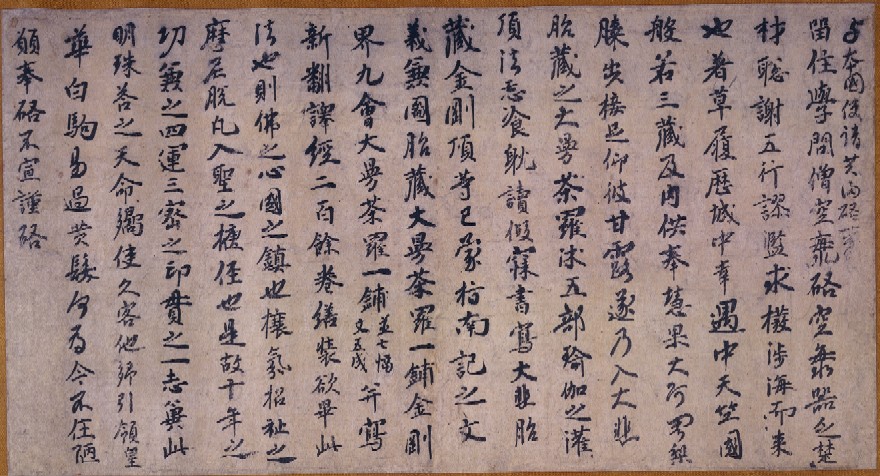 与本國使請共歸啓
留住學問僧空海啓空海器乏楚
材聡謝五行謬濫求撥涉海而来
也著草履歷城中幸遇中天竺國
般若三藏及内供奉慧果大阿闍梨
膝步接足仰彼甘露遂乃入大悲
胎藏之大曼荼羅沐五部瑜伽之灌
頂法忘飡耽讀假寐書寫大悲胎
藏金剛頂等已蒙指南記之文
義兼圖胎藏大曼荼羅一鋪金剛
界九會大曼荼羅一鋪並七幅丈五尺并寫
新翻譯經二百餘卷繕裝欲畢此
法也則佛之心國之鎮也攘氛招祉之
摩尼脫凡入聖之徑也是故十年之
功兼之四運三密之印貫之一志兼此
明珠答之天命嚮使久客他鄉引領皇
華白駒易過黄髮何為今不任陋
願奉啓不宣謹啓